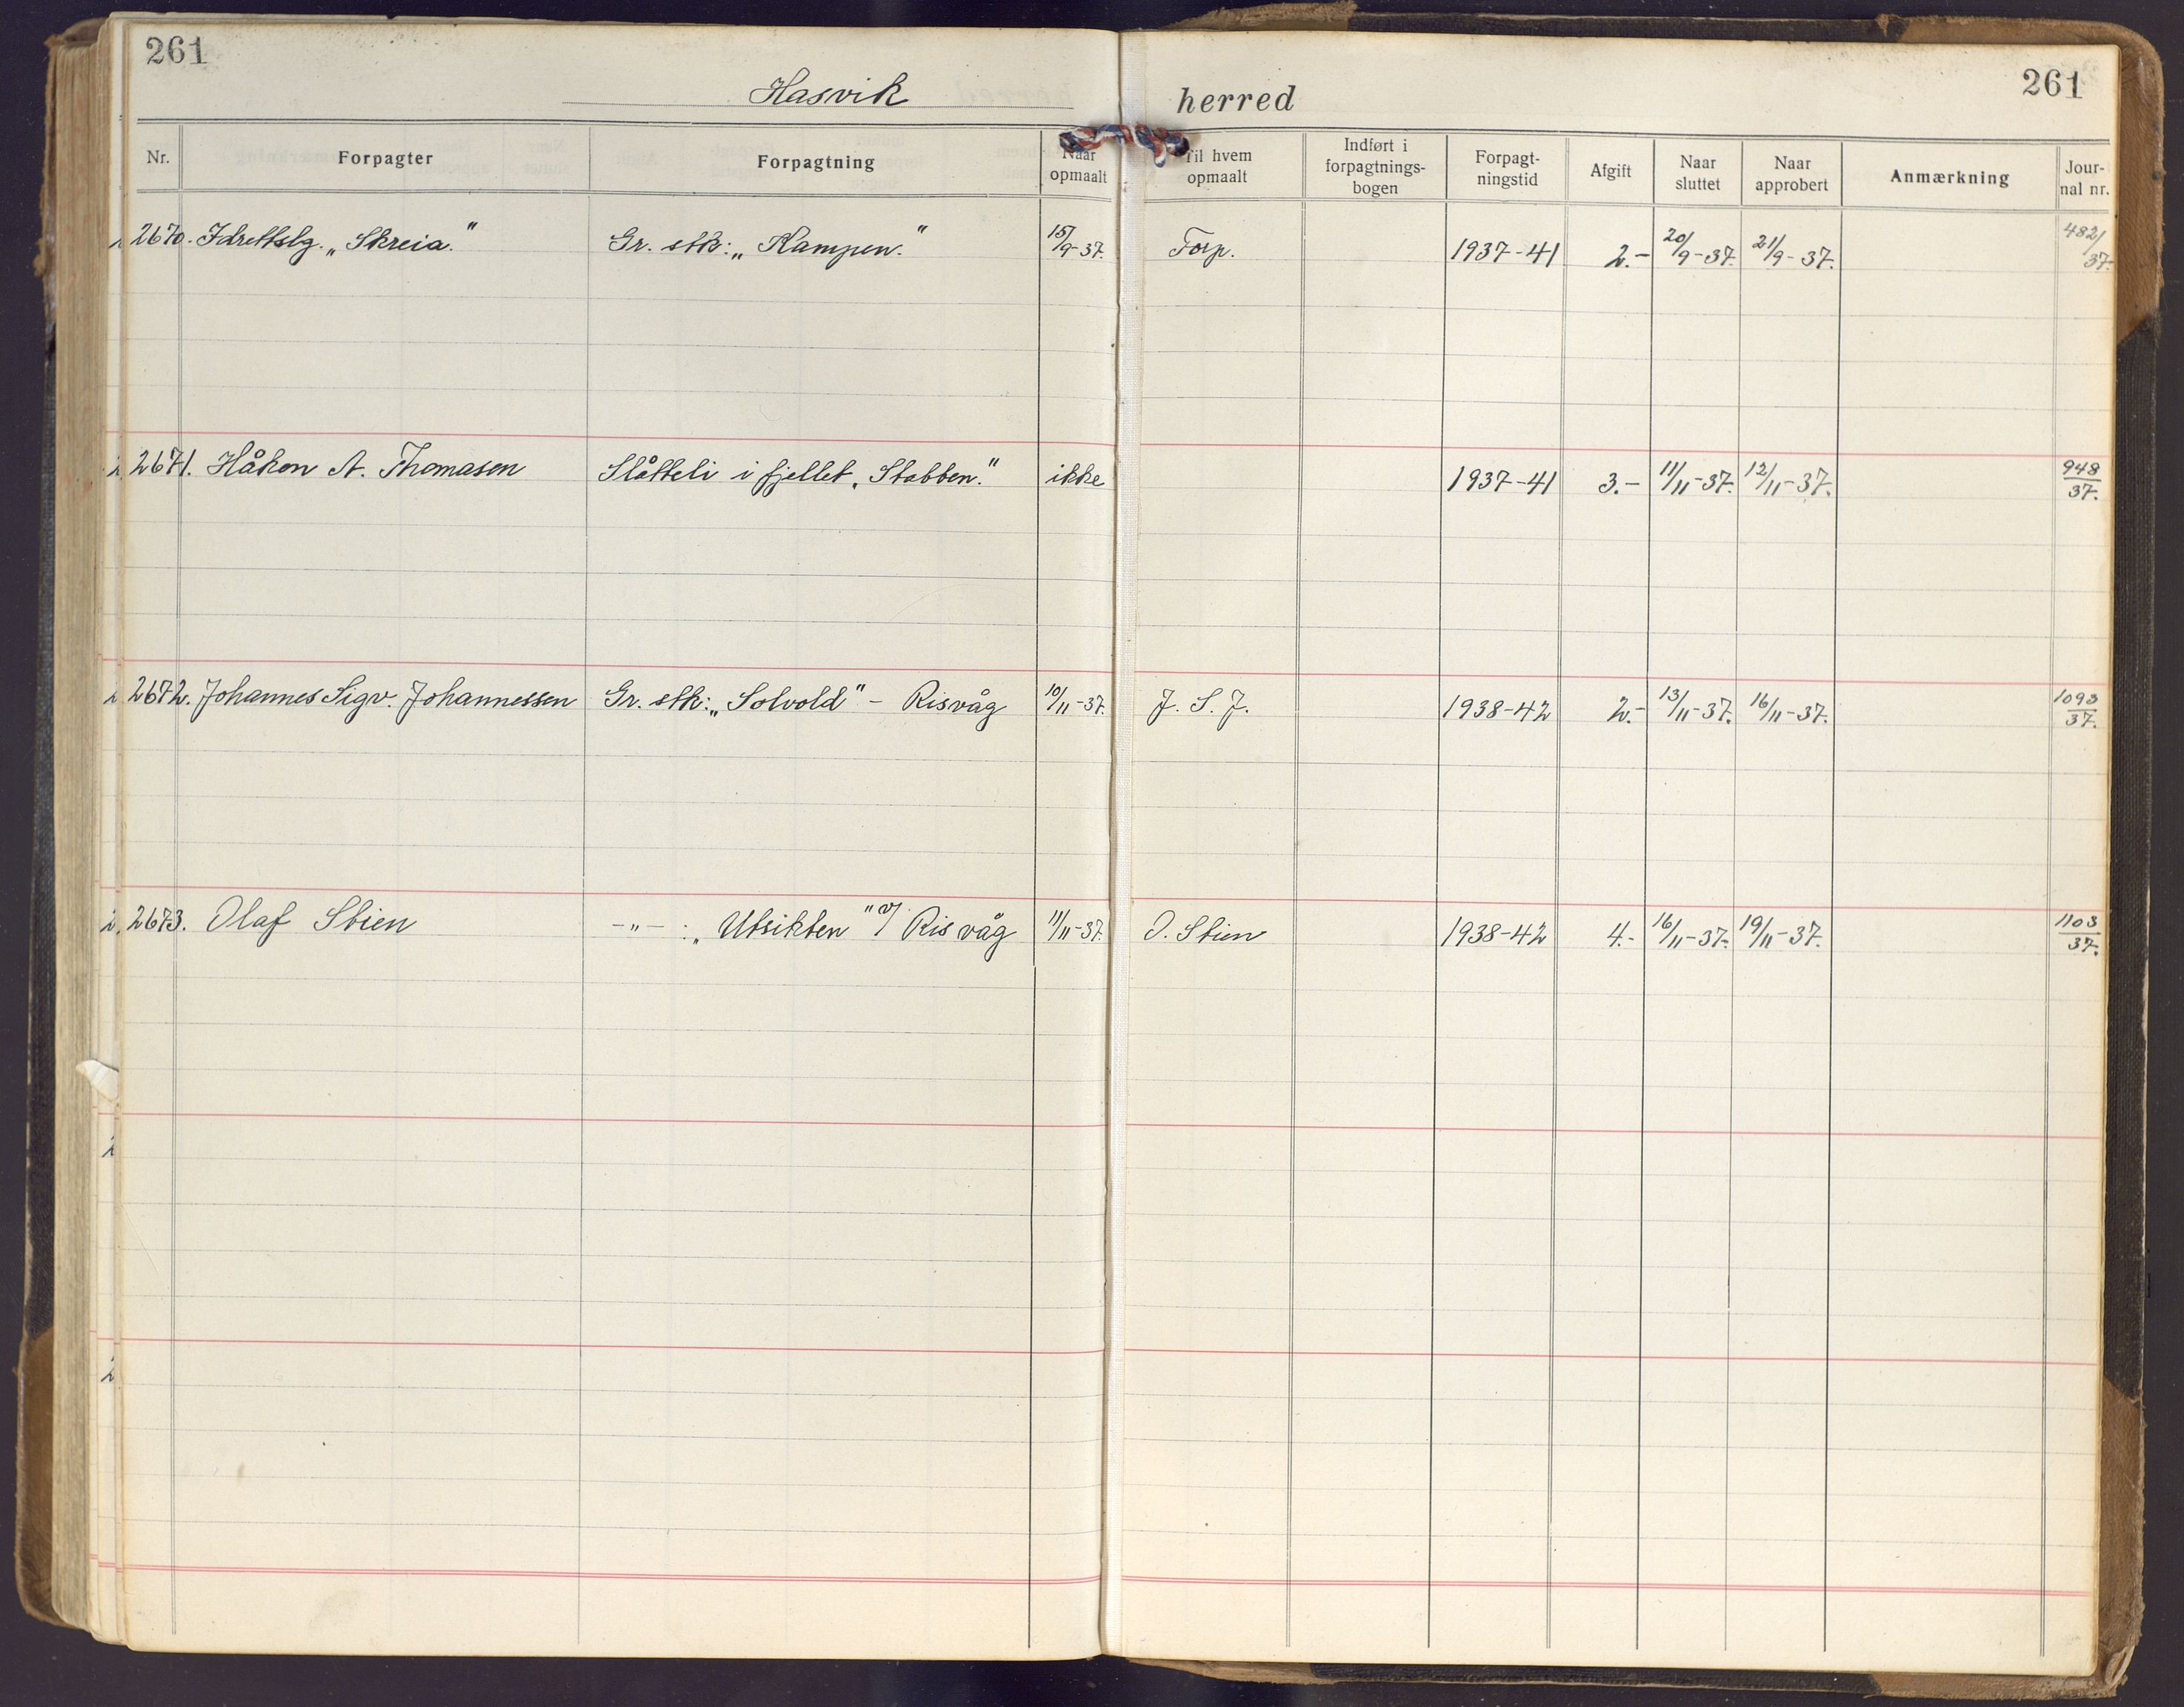 261
Hasvik herred
261
Nr. Forpagter Forpagtning Naar opmaalt Til hvem opmaalt Indført i forpagtnings-bogen Forpagt-ningstid Afgift Naar sluttet Naar approbert Anmærkning Jour-nal nr.
2670. Idrettslg. „Skreia." Gr. stk: „Kampen." 15/9-37. Forp. 1937-41 2.- 20/9-37. 21/9-37. 482/37.
2671. Håkon A. Thomasen Slåtteli i fjellet „Stabben." ikke 1937-41 3.- 11/11-37. 12/11-37. 948/37.
2672. Johannes Sigv. Johannessen Gr. stk: „Solvold" - Risvåg 10/11-37. J. S. J. 1938-42 2.- 13/11-37. 16/11-37. 1093/37.
2673. Olaf Stien -"- : „Utsikten" v/ Risvåg 11/11-37. O. Stien 1938-42 4.- 16/11-37. 19/11-37. 1103/37.